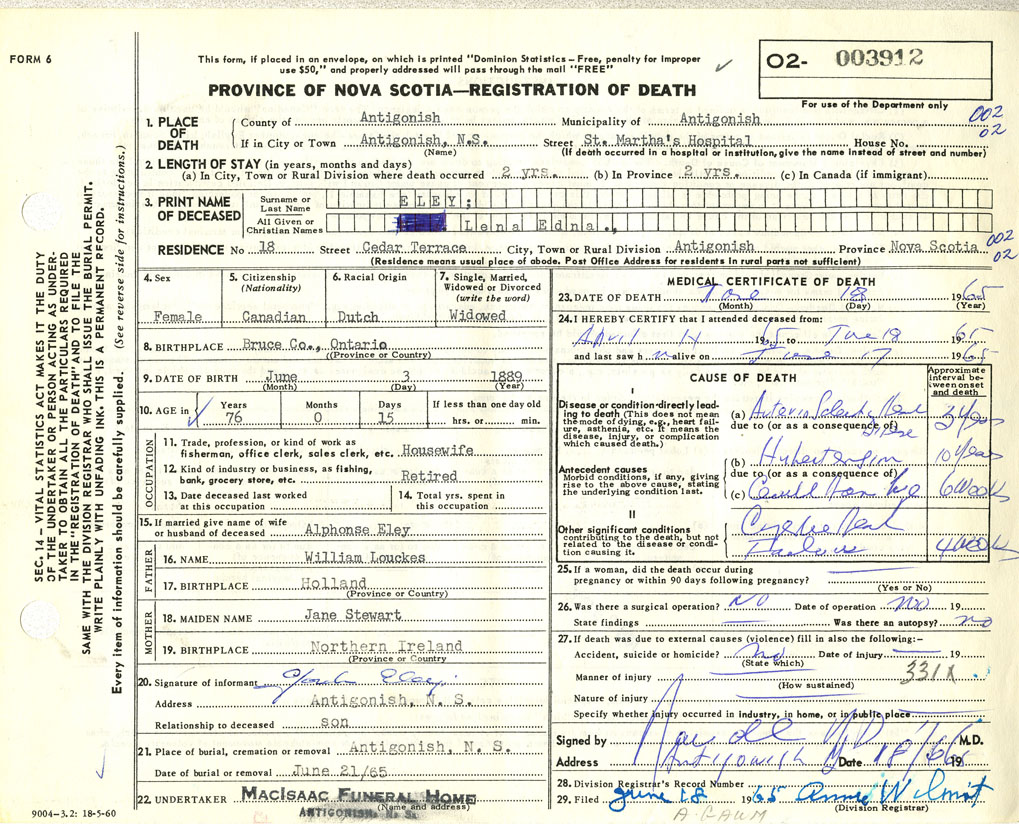 FORM 6
This form, if placed in an envelope, on which is printed "Dominion Statistics – Free, penalty for improper
use $50," and properly addressed will pass through the mail "FREE"
O2- 003912
For use of the Department only
PROVINCE OF NOVA SCOTIA—REGISTRATION OF DEATH
002
02
1. PLACE OF DEATH
County of Antigonish Municipality of Antigonish
If in City or Town Antigonish, N.S. Street St. Martha's Hospital House No.
(Name) (If death occurred in a hospital or institution, give the name instead of street and number)
2. LENGTH OF STAY (in years, months and days)
(a) In City, Town or Rural Division where death occurred 2 yrs. (b) In Province 2 yrs. (c) In Canada (if immigrant)
3. PRINT NAME OF DECEASED
Surname or Last Name ELEY:
All Given or Christian Names Lena Edna.,
RESIDENCE No 18 Street Cedar Terrace City, Town or Rural Division Antigonish Province Nova Scotia
002
02
(Residence means usual place of abode. Post Office Address for residents in rural parts not sufficient)
4. Sex
Female
5. Citizenship
(Nationality)
Canadian
6. Racial Origin
Dutch
7. Single, Married,
Widowed or Divorced
(write the word)
Widowed
8. BIRTHPLACE Bruce Co., Ontario
(Province or Country)
9. DATE OF BIRTH June 3 1889
(Month) (Day) (Year)
10. AGE in Years Months Days If less than one day old
76 0 15 hrs. or min.
OCCUPATION
11. Trade, profession, or kind of work as
fisherman, office clerk, sales clerk, etc. Housewife
12. Kind of industry or business, as fishing,
bank, grocery store, etc. Retired
13. Date deceased last worked
at this occupation
14. Total yrs. spent in
this occupation
15. If married give name of wife
or husband of deceased Alphonse Eley
FATHER
16. NAME William Louckes
17. BIRTHPLACE Holland
(Province or Country)
MOTHER
18. MAIDEN NAME Jane Stewart
19. BIRTHPLACE Northern Ireland
(Province or Country
20. Signature of informant Eley
Address Antigonish, N. S.
Relationship to deceased son
21. Place of burial, cremation or removal Antigonish, N. S.
Date of burial or removal June 21/65
22. UNDERTAKER MACISAAC FUNERAL HOME
(Name and address)
ANTIGONISH, N. S.
MEDICAL CERTIFICATE OF DEATH
23. DATE OF DEATH June 18 1965
(Month) (Day) (Year)
24. I HEREBY CERTIFY that I attended deceased from:
April 14 1965 to June 18 1965
and last saw h alive on June 17 1965
CAUSE OF DEATH
Approximate
interval be-
tween onset
and death
I
Disease or condition directly lead-
ing to death (This does not mean
the mode of dying, e.g., heart fail-
ure, asthenia, etc. It means the
disease, injury, or complication
which caused death.)
(a) Heart
due to (or as a consequence of)
Disease
Antecedent causes
Morbid conditions, if any, giving
rise to the above cause, stating
the underlying condition last.
(b) Hypertension 10 Years
due to (or as a consequence of)
(c) 6 Weeks
II
Other significant conditions
contributing to the death, but not
related to the disease or condi-
tion causing it.
Heart
Failure 4 Weeks
25. If a woman, did the death occur during
pregnancy or within 90 days following pregnancy?
(Yes or No)
26. Was there a surgical operation? No Date of operation No 19
State findings Was there an autopsy? no
27. If death was due to external causes (violence) fill in also the following:–
Accident, suicide or homicide? No Date of injury 19
(State which)
Manner of injury 331X
(How sustained)
Nature of injury
Specify whether injury occurred in industry, in home, or in public place
Signed by M.D.
Address Antigonish Date 18/6/65 19
28. Division Registrar's Record Number
29. Filed June 18 1965 Anne Wilmot
(Division Registrar)
A. GAUM
SEC. 14 – VITAL STATISTICS ACT MAKES IT THE DUTY
OF THE UNDERTAKER OR PERSON ACTING AS UNDER-
TAKER TO OBTAIN ALL THE PARTICULARS REQUIRED
IN THE "REGISTRATION OF DEATH" AND TO FILE THE
SAME WITH THE DIVISION REGISTRAR WHO SHALL ISSUE THE BURIAL PERMIT.
WRITE PLAINLY WITH UNFADING INK. THIS IS A PERMANENT RECORD.
Every item of information should be carefully supplied. (See reverse side for instructions.)
9004–3.2: 18-5-60